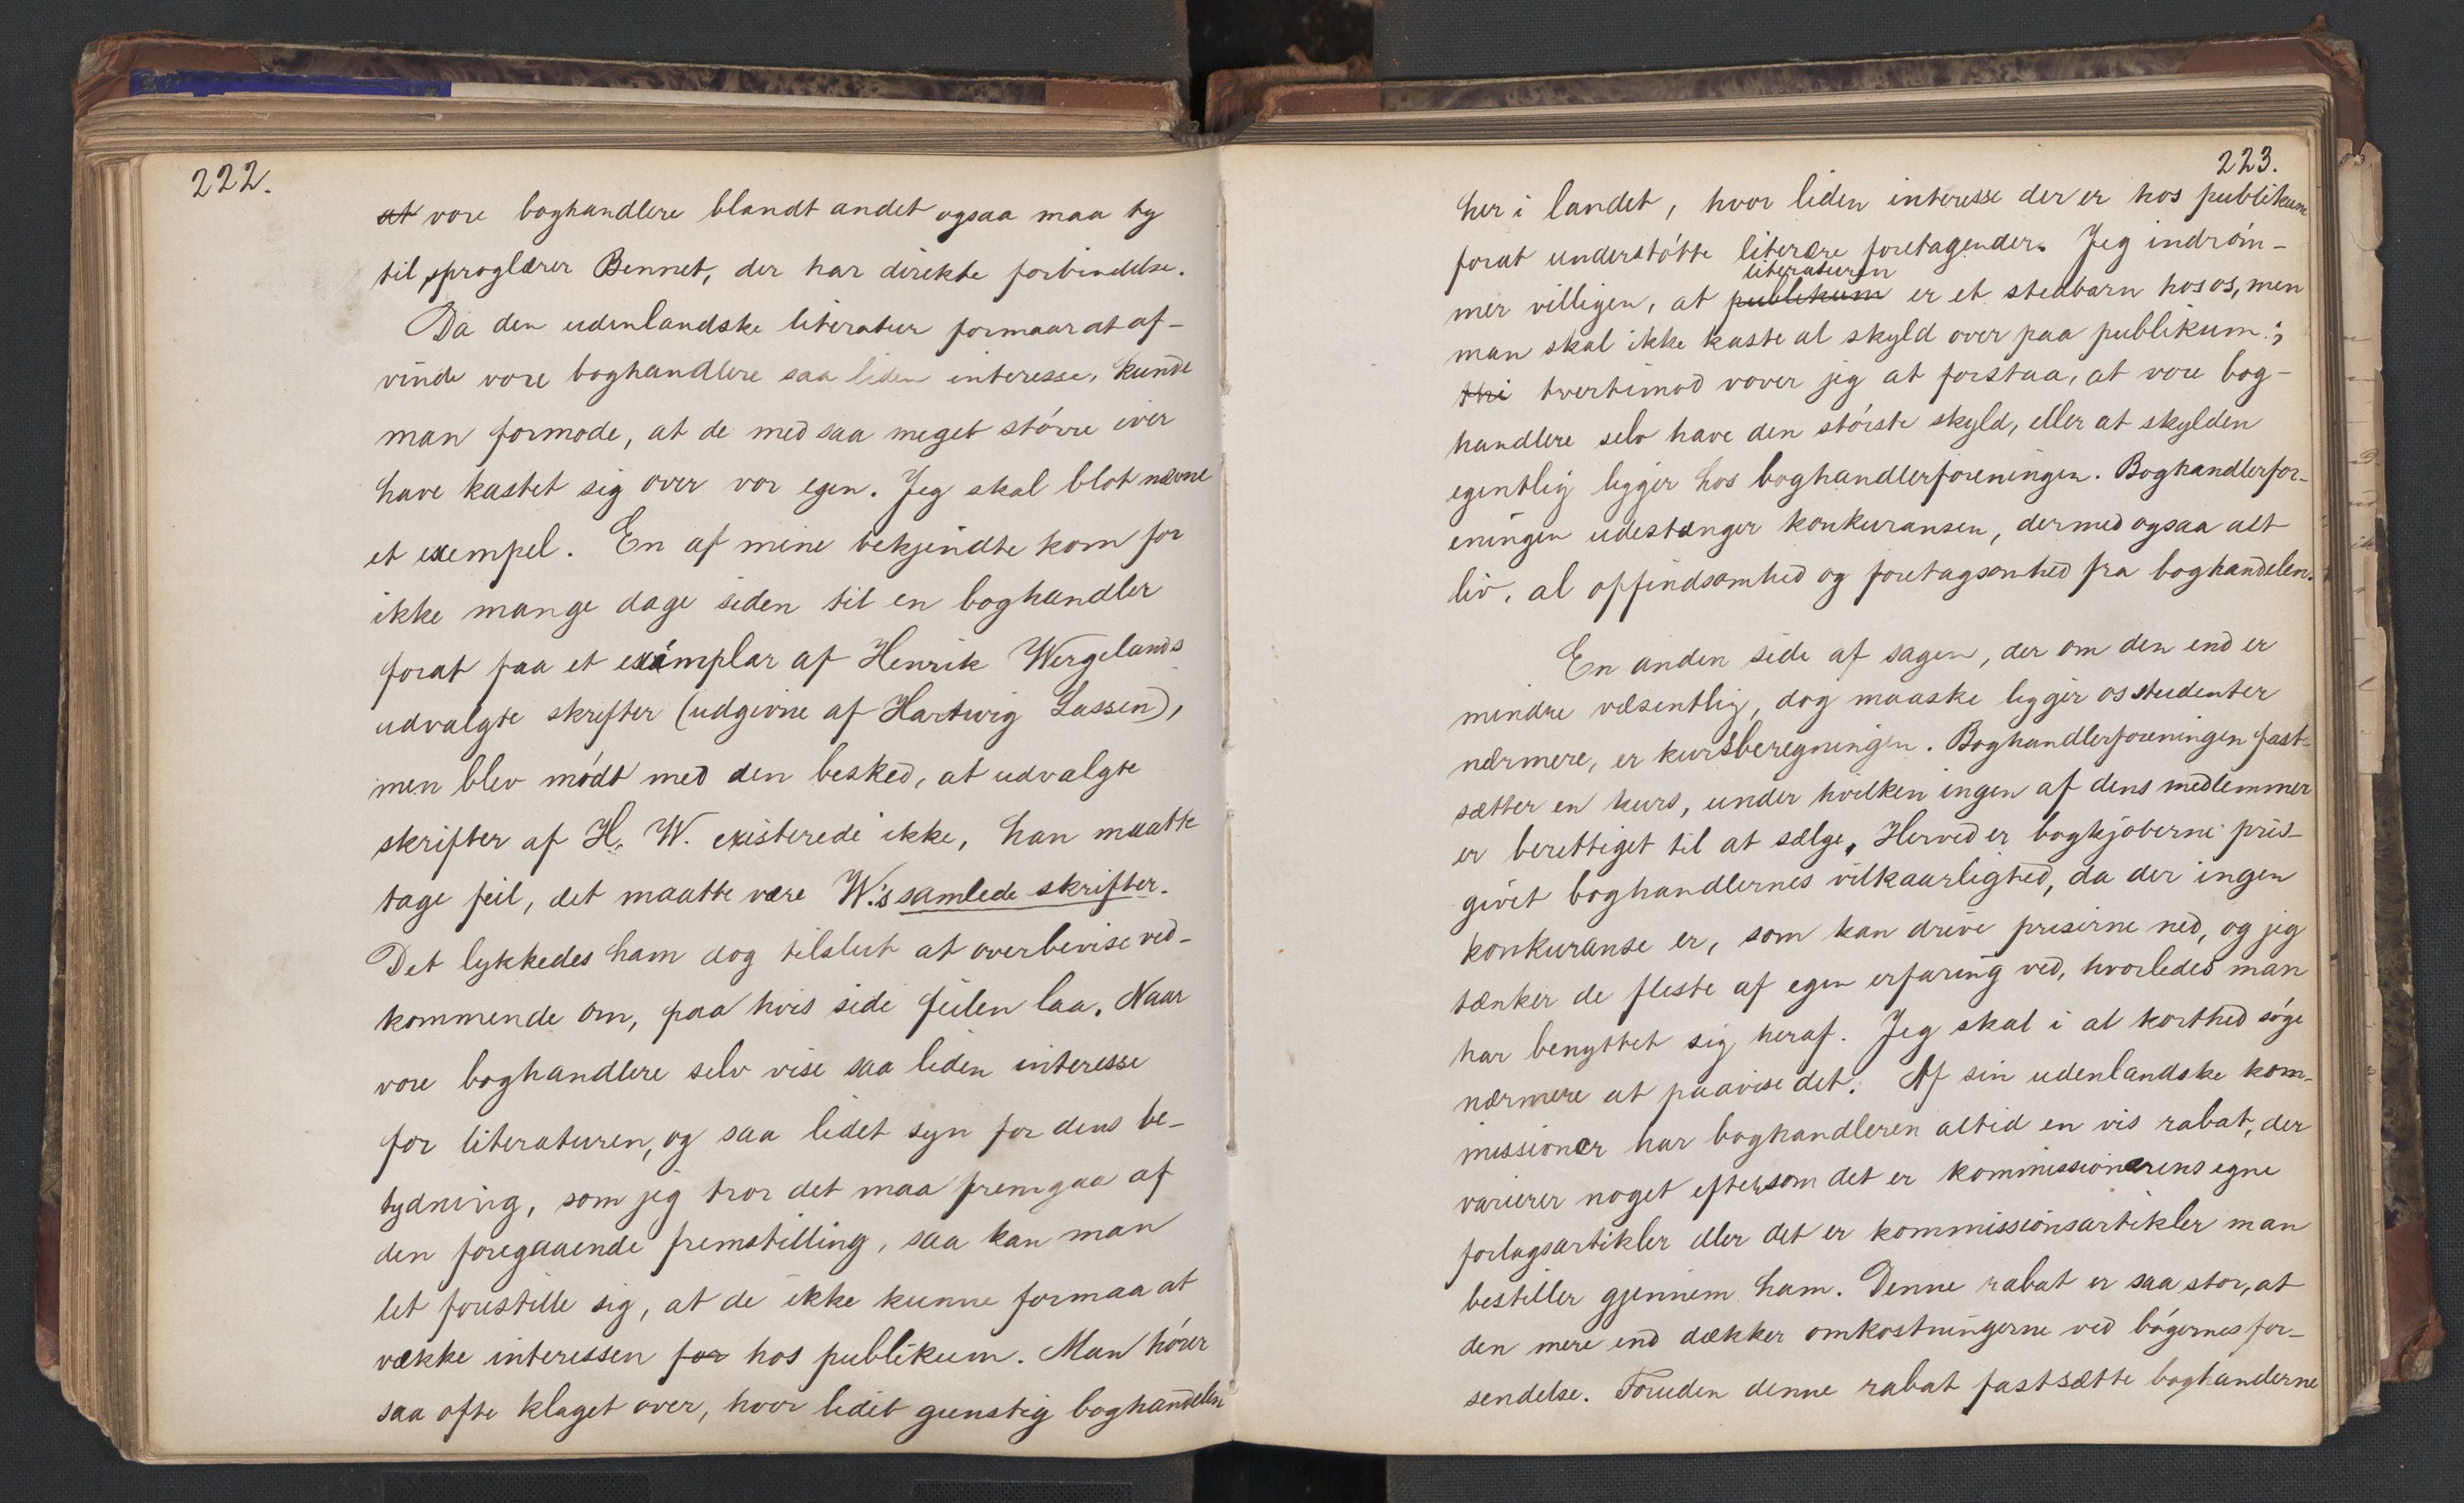 222.
at vore boghandlere blandt andet ogsaa maa ty
til sproglærer Bennet, der har direkte forbindelse.
Da den udenlandske literatur formaar at af-
vinde vore boghandlere saa liden interesse, kunde
man formode, at de med saa meget större iver
have kastet sig over vor egen. Jeg skal blot nævne
et exempel. En af mine bekjendte kom for
ikke mange dage siden til en boghandler
forat faa et exemplar af Henrik Wergelands
udvalgte skrifter (udgivne af Hartvig Lassen),
men blev mödt med den besked, at udvalgte
skrifter af H. W. existerede ikke, han maatte
tage feil, det maatte være W.'s samlede skrifter.
Det lykkedes ham dog tilslut at overbevise ved-
kommende om, paa hvis side feilen laa. Naar
vore boghandlere selv vise saa liden interesse
for literaturen, og saa lidet syn for dens be-
tydning, som jeg tror det maa fremgaa af
den foregaaende fremstilling, saa kan man
let forestille sig, at de ikke kunne formaa at
vække interessen for hos publikum. Man hörer
saa ofte klaget over, hvor lidet gunstig boghandelen
223.
her i landet, hvor liden interesse der er hos publikum
forat understötte literære foretagender. Jeg indröm-
literaturen
mer villigen, at publikum er et stedbarn hos os, men
man skal ikke kaste al skyld over paa publikum;
thi tvertimod vover jeg at forstaa, at vore bog-
handlere selv have den störste skyld, eller at skylden
egentlig ligger hos boghandlerforeningen. Boghandlerfor-
eningen udestænger konkuransen, dermed ogsaa alt
liv, al opfindsomhed og foretagsomhed fra boghandelen.
En anden side af sagen, der om den end er
mindre væsentlig, dog maaske ligger os studenter
nærmere, er kursberegningen. Boghandlerforeningen fast-
sætter en kurs, under hvilken ingen af dens medlemmer
er berettiget til at sælge. Herved er bogkjöberne pris-
givet boghandlernes vilkaarlighed, da der ingen
konkuranse er, som kan drive priserne ned, og jeg
tænker de fleste af egen erfaring ved, hvorledes man
har benyttet sig heraf. Jeg skal i al korthed söge
nærmere at paavise det. Af sin udenlandske kom-
missionær har boghandleren altid en vis rabat, der
varierer noget eftersom det er kommissionærens egne
forlagsartikler eller det er kommissionsartikler man
bestiller gjennem ham. Denne rabat er saa stor, at
den mere end dækker omkostningerne ved bögernes for-
sendelse. Foruden denne rabat fastsætte boghanderne